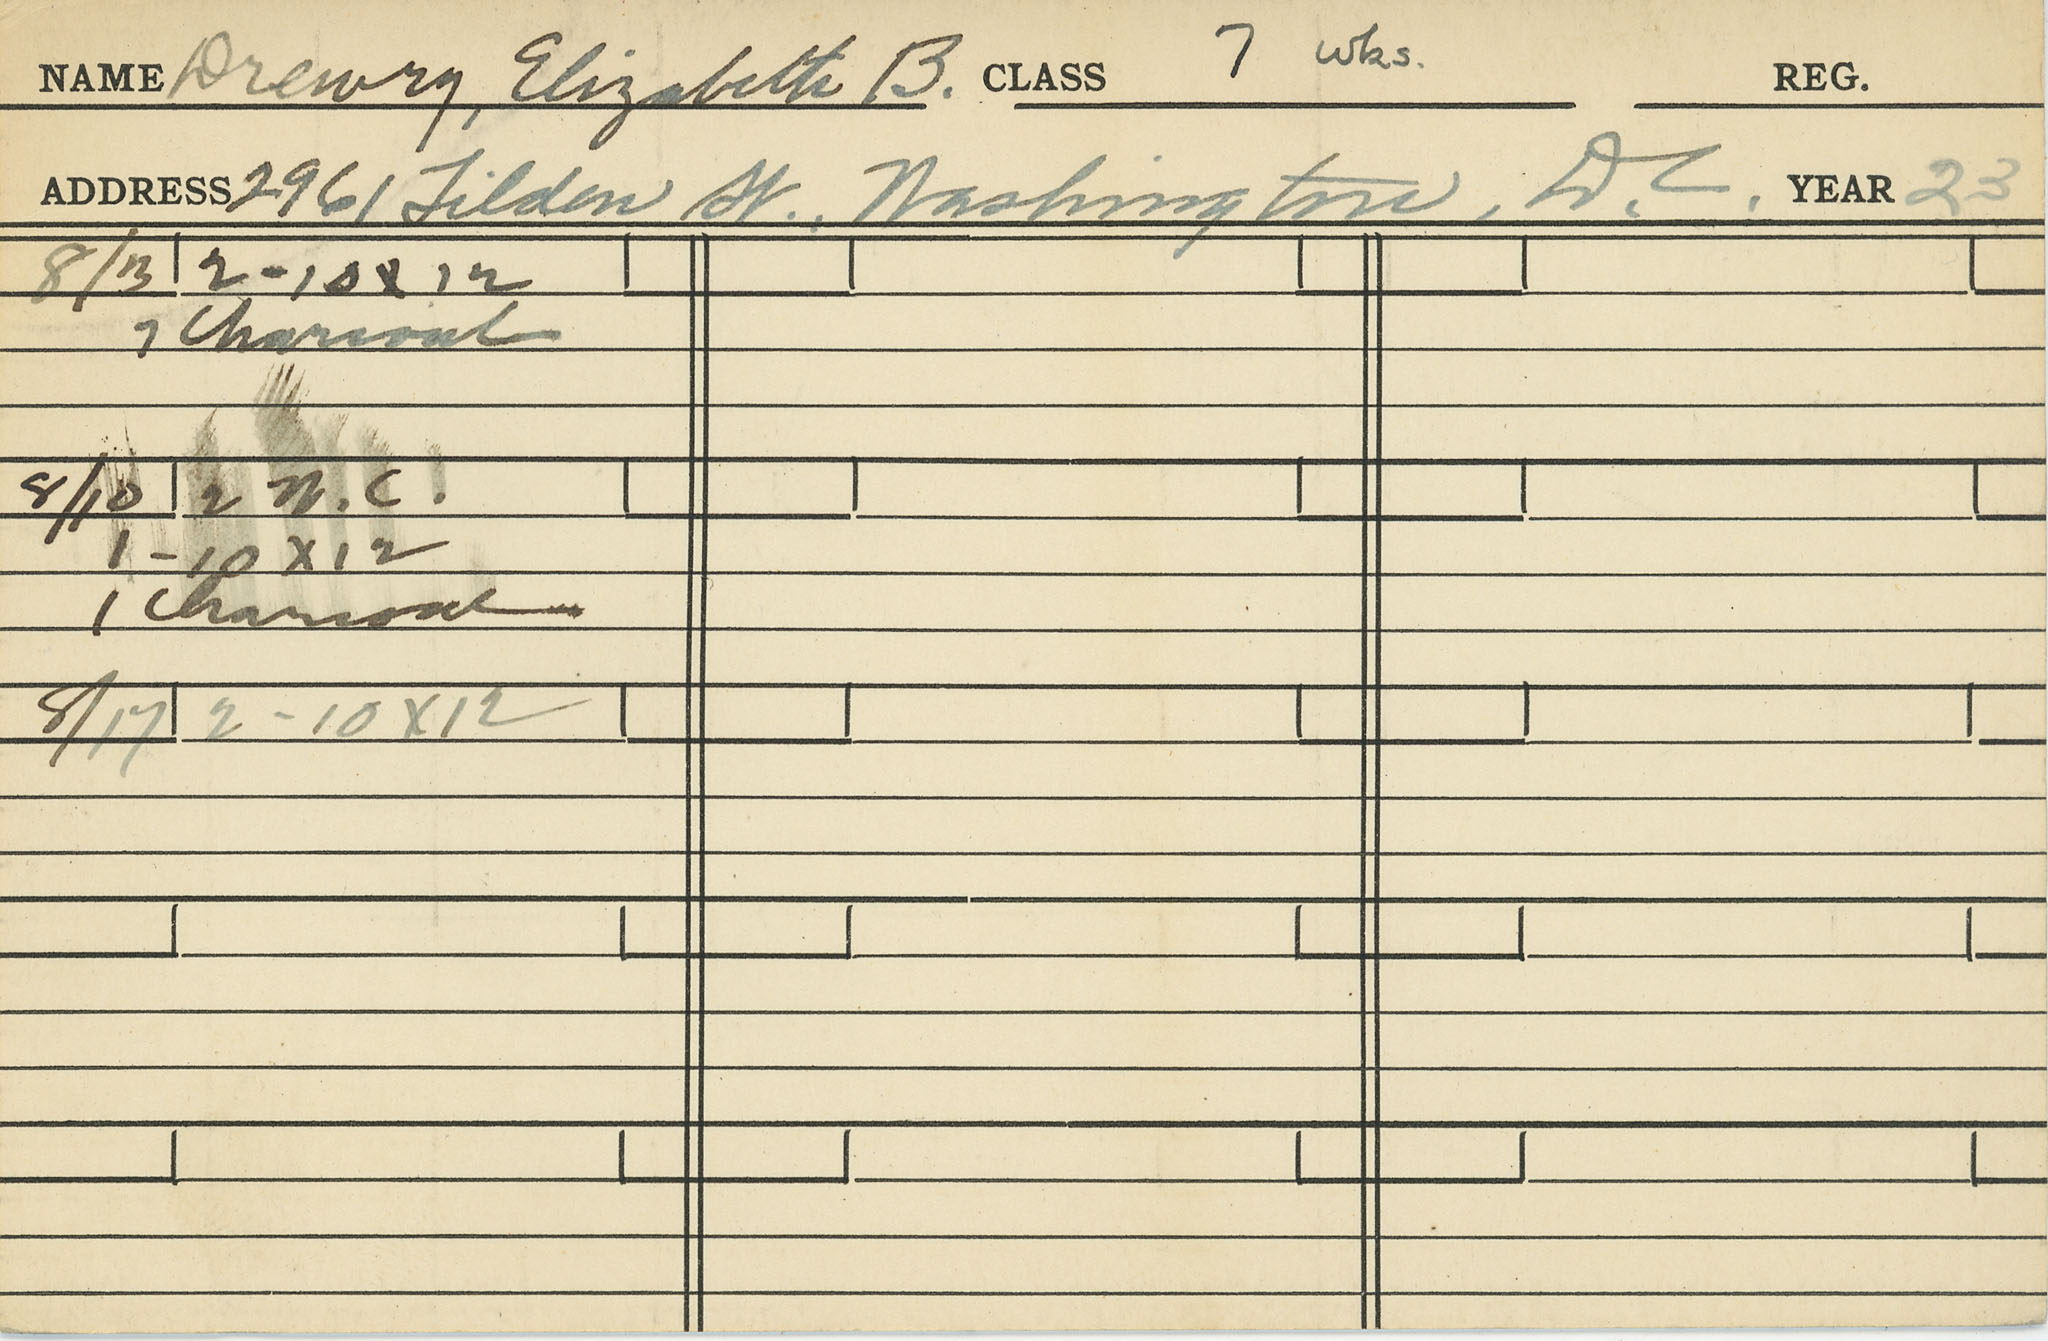 NAME Drewry, Elizabeth B. CLASS 7 wks. REG.
ADDRESS 2961 Tilden St., Washington, D.C. YEAR 23
8/3 2-10x12
7 Charcoal
8/10 2 W.C.
1-10x12
1 Charcoal
8/17 2-10x12